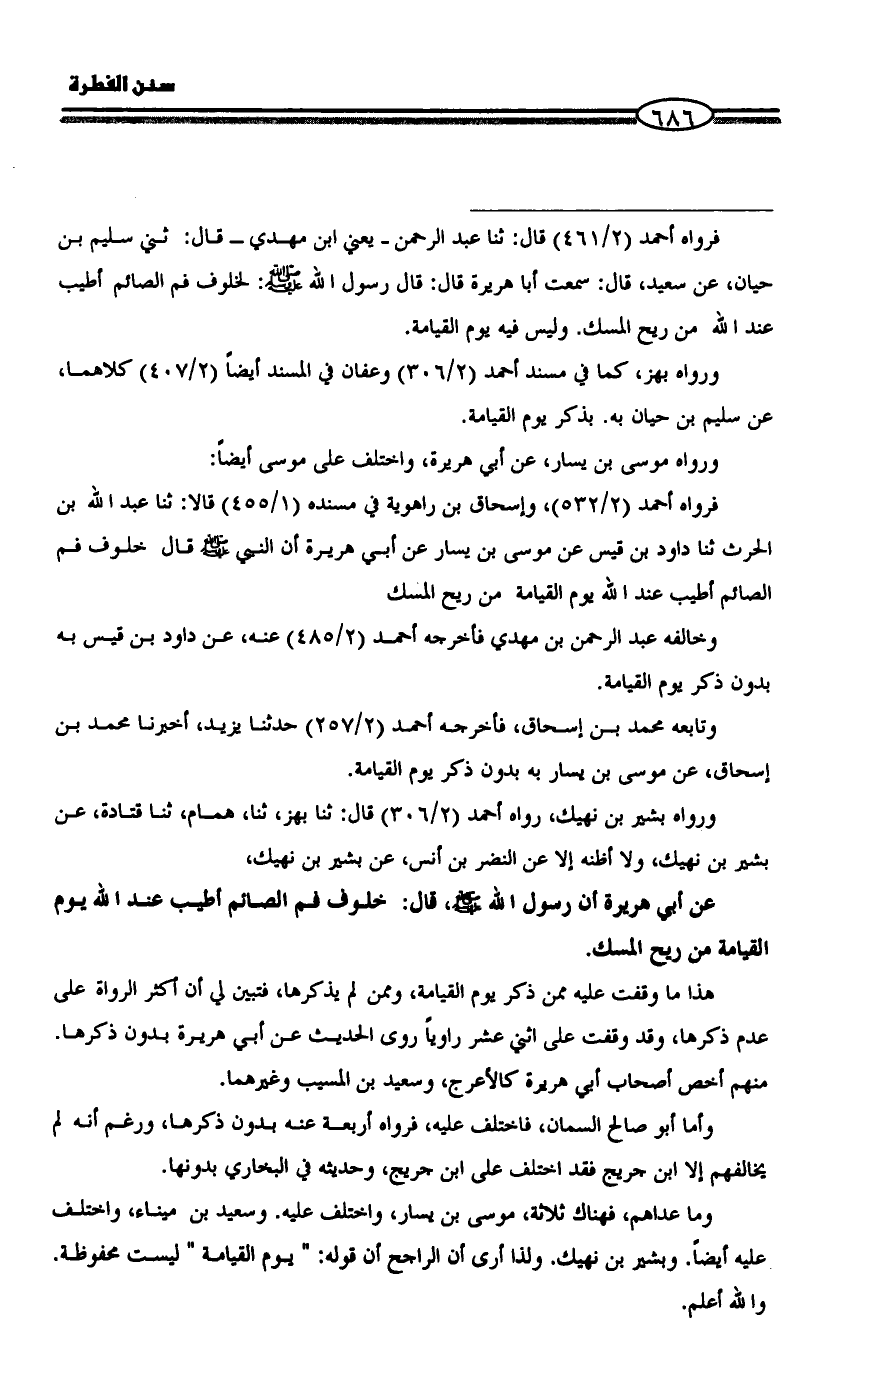 سنن الفطرة
٦٨٦
فرواه أحمد (٤٦١/٢) قال: ثنا عبد الرحمن ـ يعني ابن مهـدي ـ قـال: ثـني سـليم بـن
حيان، عن سعيد، قال: سمعت أبا هريرة قال: قال رسول الله ﷺ: لخلوف فم الصائم أطيب
عند الله من ريح المسك. وليس فيه يوم القيامة.
ورواه بهز، كما في مسند أحمد (٣٠٦/٢) وعفان في المسند أيضاً (٤٠٧/٢) كلاهمـا،
عن سليم بن حيان به. بذكر يوم القيامة.
ورواه موسى بن يسار، عن أبي هريرة، واختلف على موسى أيضاً:
فرواه أحمد (٥٣٢/٢)، وإسحاق بن راهوية في مسنده (٤٥٥/١) قالا: ثنا عبد الله بن
الحرث ثنا داود بن قيس عن موسى بن يسار عن أبـي هريـرة أن النبي ﷺ قـال خلـوف فـم
الصائم أطيب عند الله يوم القيامة من ريح المسك
وخالفه عبد الرحمن بن مهدي فأخرجه أحمـد (٤٨٥/٢) عنـه، عـن داود بـن قيـس بـه
بدون ذكر يوم القيامة.
وتابعه محمد بـن إسـحاق، فأخرجـه أحمـد (٢٥٧/٢) حدثنـا يزيـد، أخبرنـا محمـد بـن
إسحاق، عن موسى بن يسار به بدون ذكر يوم القيامة.
ورواه بشير بن نهيك، رواه أحمد (٣٠٦/٢) قال: ثنا بهز، ثنا، همـام، ثنـا قتـادة، عـن
بشير بن نهيك، ولا أظنه إلا عن النضر بن أنس، عن بشير بن نهيك،
عن أبي هريرة أن رسول الله ﷺ، قال: خلـوف فـم الصـائم أطيـب عنـد الله يـوم
القيامة من ريح المسك.
هذا ما وقفت عليه ممن ذكر يوم القيامة، وممن لم يذكرها، فتبين لي أن أكثر الرواة على
عدم ذكرها، وقد وقفت على اثني عشر راوياً روى الحديث عـن أبـي هريـرة بـدون ذكرهـا.
منهم أخص أصحاب أبي هريرة كالأعرج، وسعيد بن المسيب وغيرهما.
وأما أبو صالح السمان، فاختلف عليه، فرواه أربعـة عنـه بـدون ذكرهـا، ورغـم أنـه لم
يخالفهم إلا ابن جريج فقد اختلف على ابن جريج، وحديثه في البخاري بدونها.
وما عداهم، فهناك ثلاثة، موسى بن يسار، واختلف عليه. وسعيد بن مينـاء، واختلـف
عليه أيضاً. وبشير بن نهيك. ولذا أرى أن الراجح أن قوله: " يـوم القيامـة " ليسـت محفوظـة.
والله أعلم.